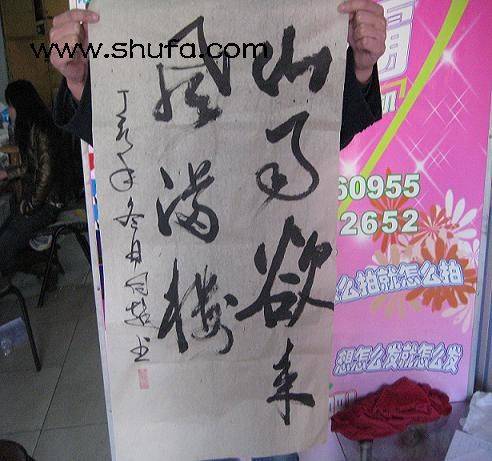 www.shufa.com
山雨欲来
风满楼
丁亥年冬月
书
60955
2652
么拍就怎么拍
想怎么发就怎么发